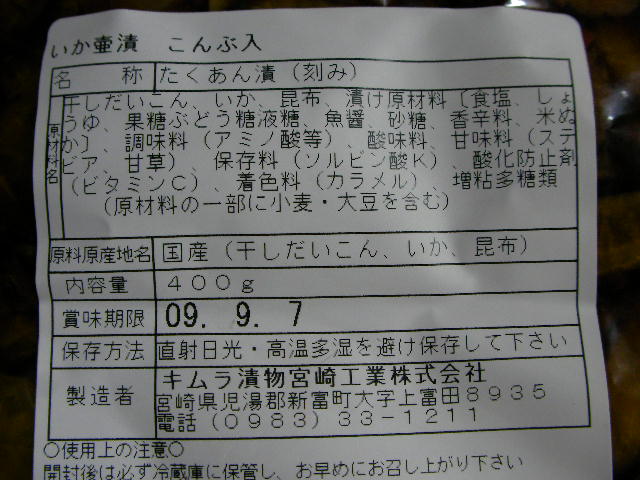 いか壷漬　こんぶ入
名　　称　たくあん漬（刻み）
原材料名
干しだいこん、いか、昆布、漬け原材料〔食塩、しょ
うゆ、果糖ぶどう糖液糖、魚醤、砂糖、香辛料、米ぬ
か〕、調味料（アミノ酸等）、酸味料、甘味料（ステ
ビア、甘草）、保存料（ソルビン酸K）、酸化防止剤
（ビタミンC）、着色料（カラメル）、増粘多糖類
（原材料の一部に小麦・大豆を含む）
原料原産地名　国産（干しだいこん、いか、昆布）
内容量　４００ｇ
賞味期限　09. 9. 7
保存方法　直射日光・高温多湿を避け保存して下さい
製造者　キムラ漬物宮崎工業株式会社
宮崎県児湯郡新富町大字上富田８９３５
電話（０９８３）３３-１２１１
○使用上の注意○
開封後は必ず冷蔵庫に保管し、お早めにお召し上がり下さい